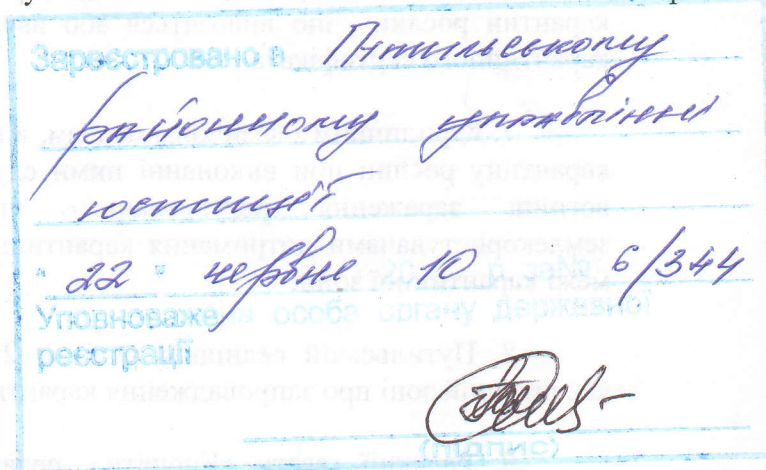 Зареєстровано в Путильському
районному управлінні
юстиції
"22" червня 10 6/344
Уповноважена особа органу державної
реєстрації
(підпис)